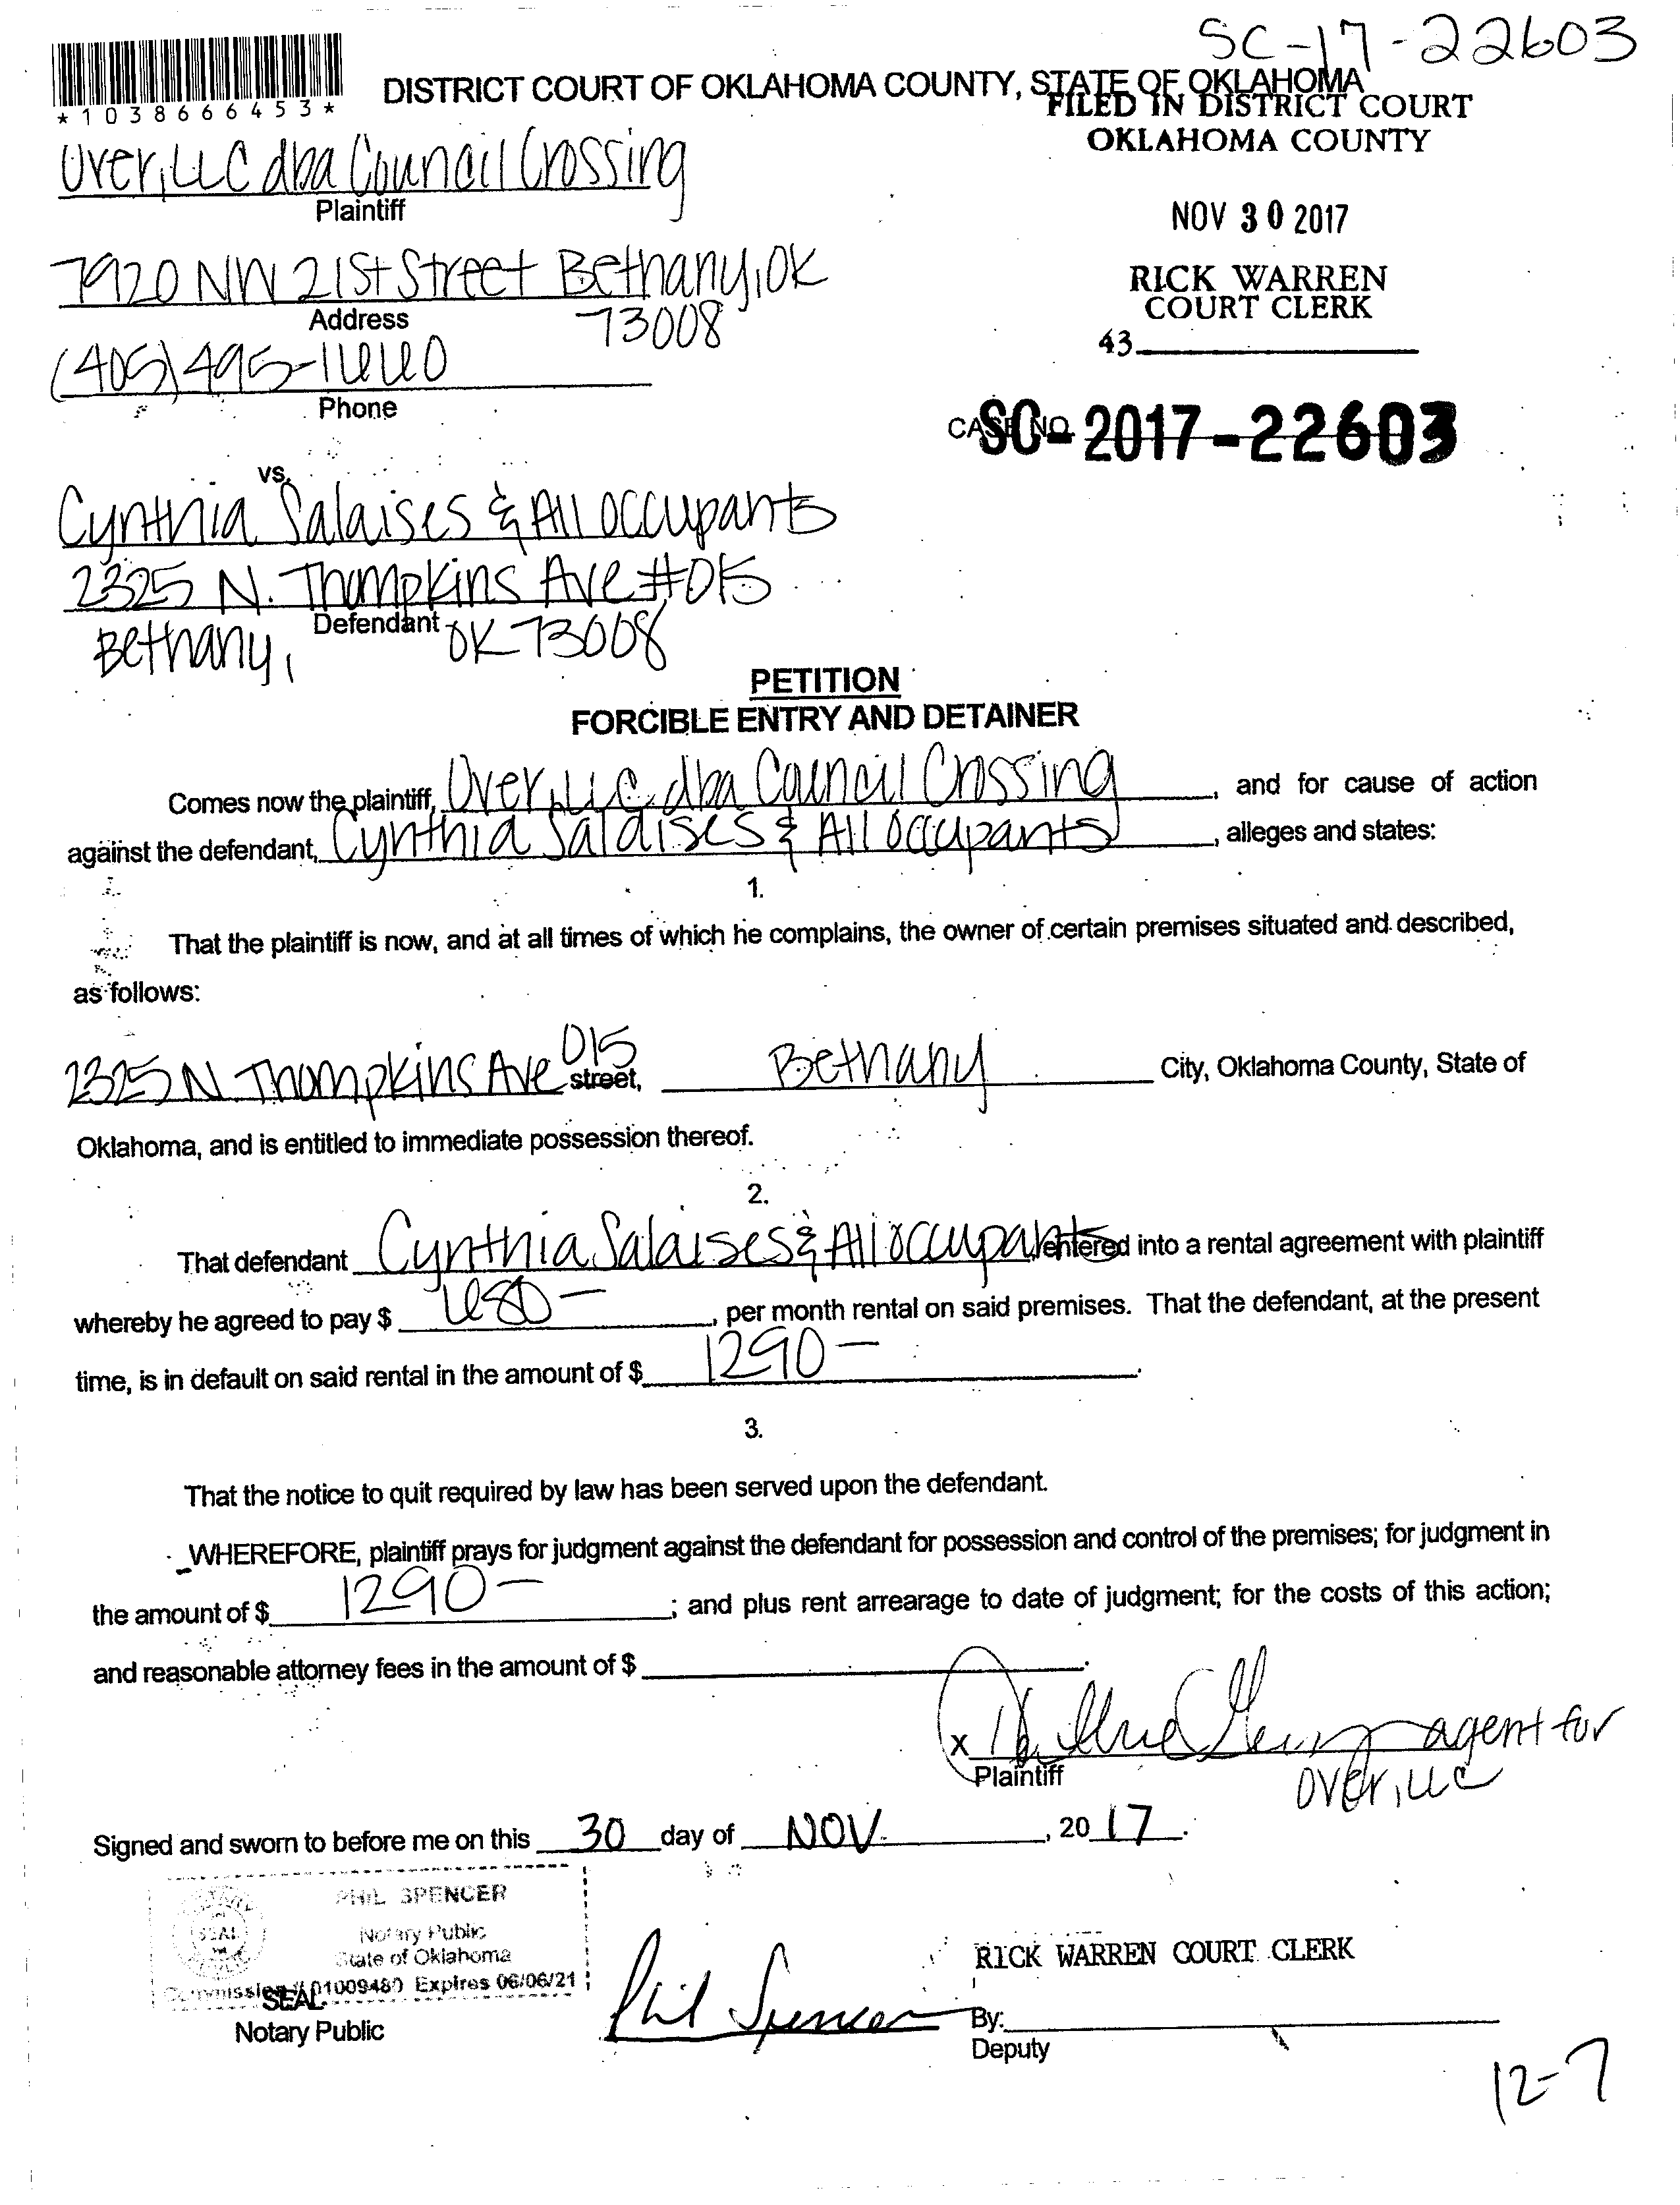 SC-17-22603
*1038666453*
DISTRICT COURT OF OKLAHOMA COUNTY, STATE OF OKLAHOMA
FILED IN DISTRICT COURT
OKLAHOMA COUNTY
Over, LLC dba Council Crossing
Plaintiff
NOV 30 2017
7920 NW 21st Street Bethany, OK
73008
Address
RICK WARREN
COURT CLERK
43
(405) 495-1660
Phone
CASE NO. SC-2017-22603
vs.
Cynthia Salaises & All occupants
2325 N. Thompkins Ave #015
Defendant
Bethany, OK 73008
PETITION
FORCIBLE ENTRY AND DETAINER
Comes now the plaintiff, Over, LLC dba Council Crossing, and for cause of action
against the defendant, Cynthia Salaises & All Occupants, alleges and states:
1.
That the plaintiff is now, and at all times of which he complains, the owner of certain premises situated and described,
as follows:
2325 N. Thompkins Ave 015 street, Bethany City, Oklahoma County, State of
Oklahoma, and is entitled to immediate possession thereof.
2.
That defendant Cynthia Salaises & All occupants entered into a rental agreement with plaintiff
whereby he agreed to pay $ 680-, per month rental on said premises. That the defendant, at the present
time, is in default on said rental in the amount of $ 1290-.
3.
That the notice to quit required by law has been served upon the defendant.
WHEREFORE, plaintiff prays for judgment against the defendant for possession and control of the premises; for judgment in
the amount of $ 1290-; and plus rent arrearage to date of judgment; for the costs of this action;
and reasonable attorney fees in the amount of $
x agent for
Plaintiff
Over, LLC
Signed and sworn to before me on this 30 day of NOV., 2017.
PHIL SPENCER
Notary Public
State of Oklahoma
Commission # 01009480 Expires 06/06/21
SEAL
Notary Public
Phil Spencer
RICK WARREN COURT CLERK
By:
Deputy
12-7